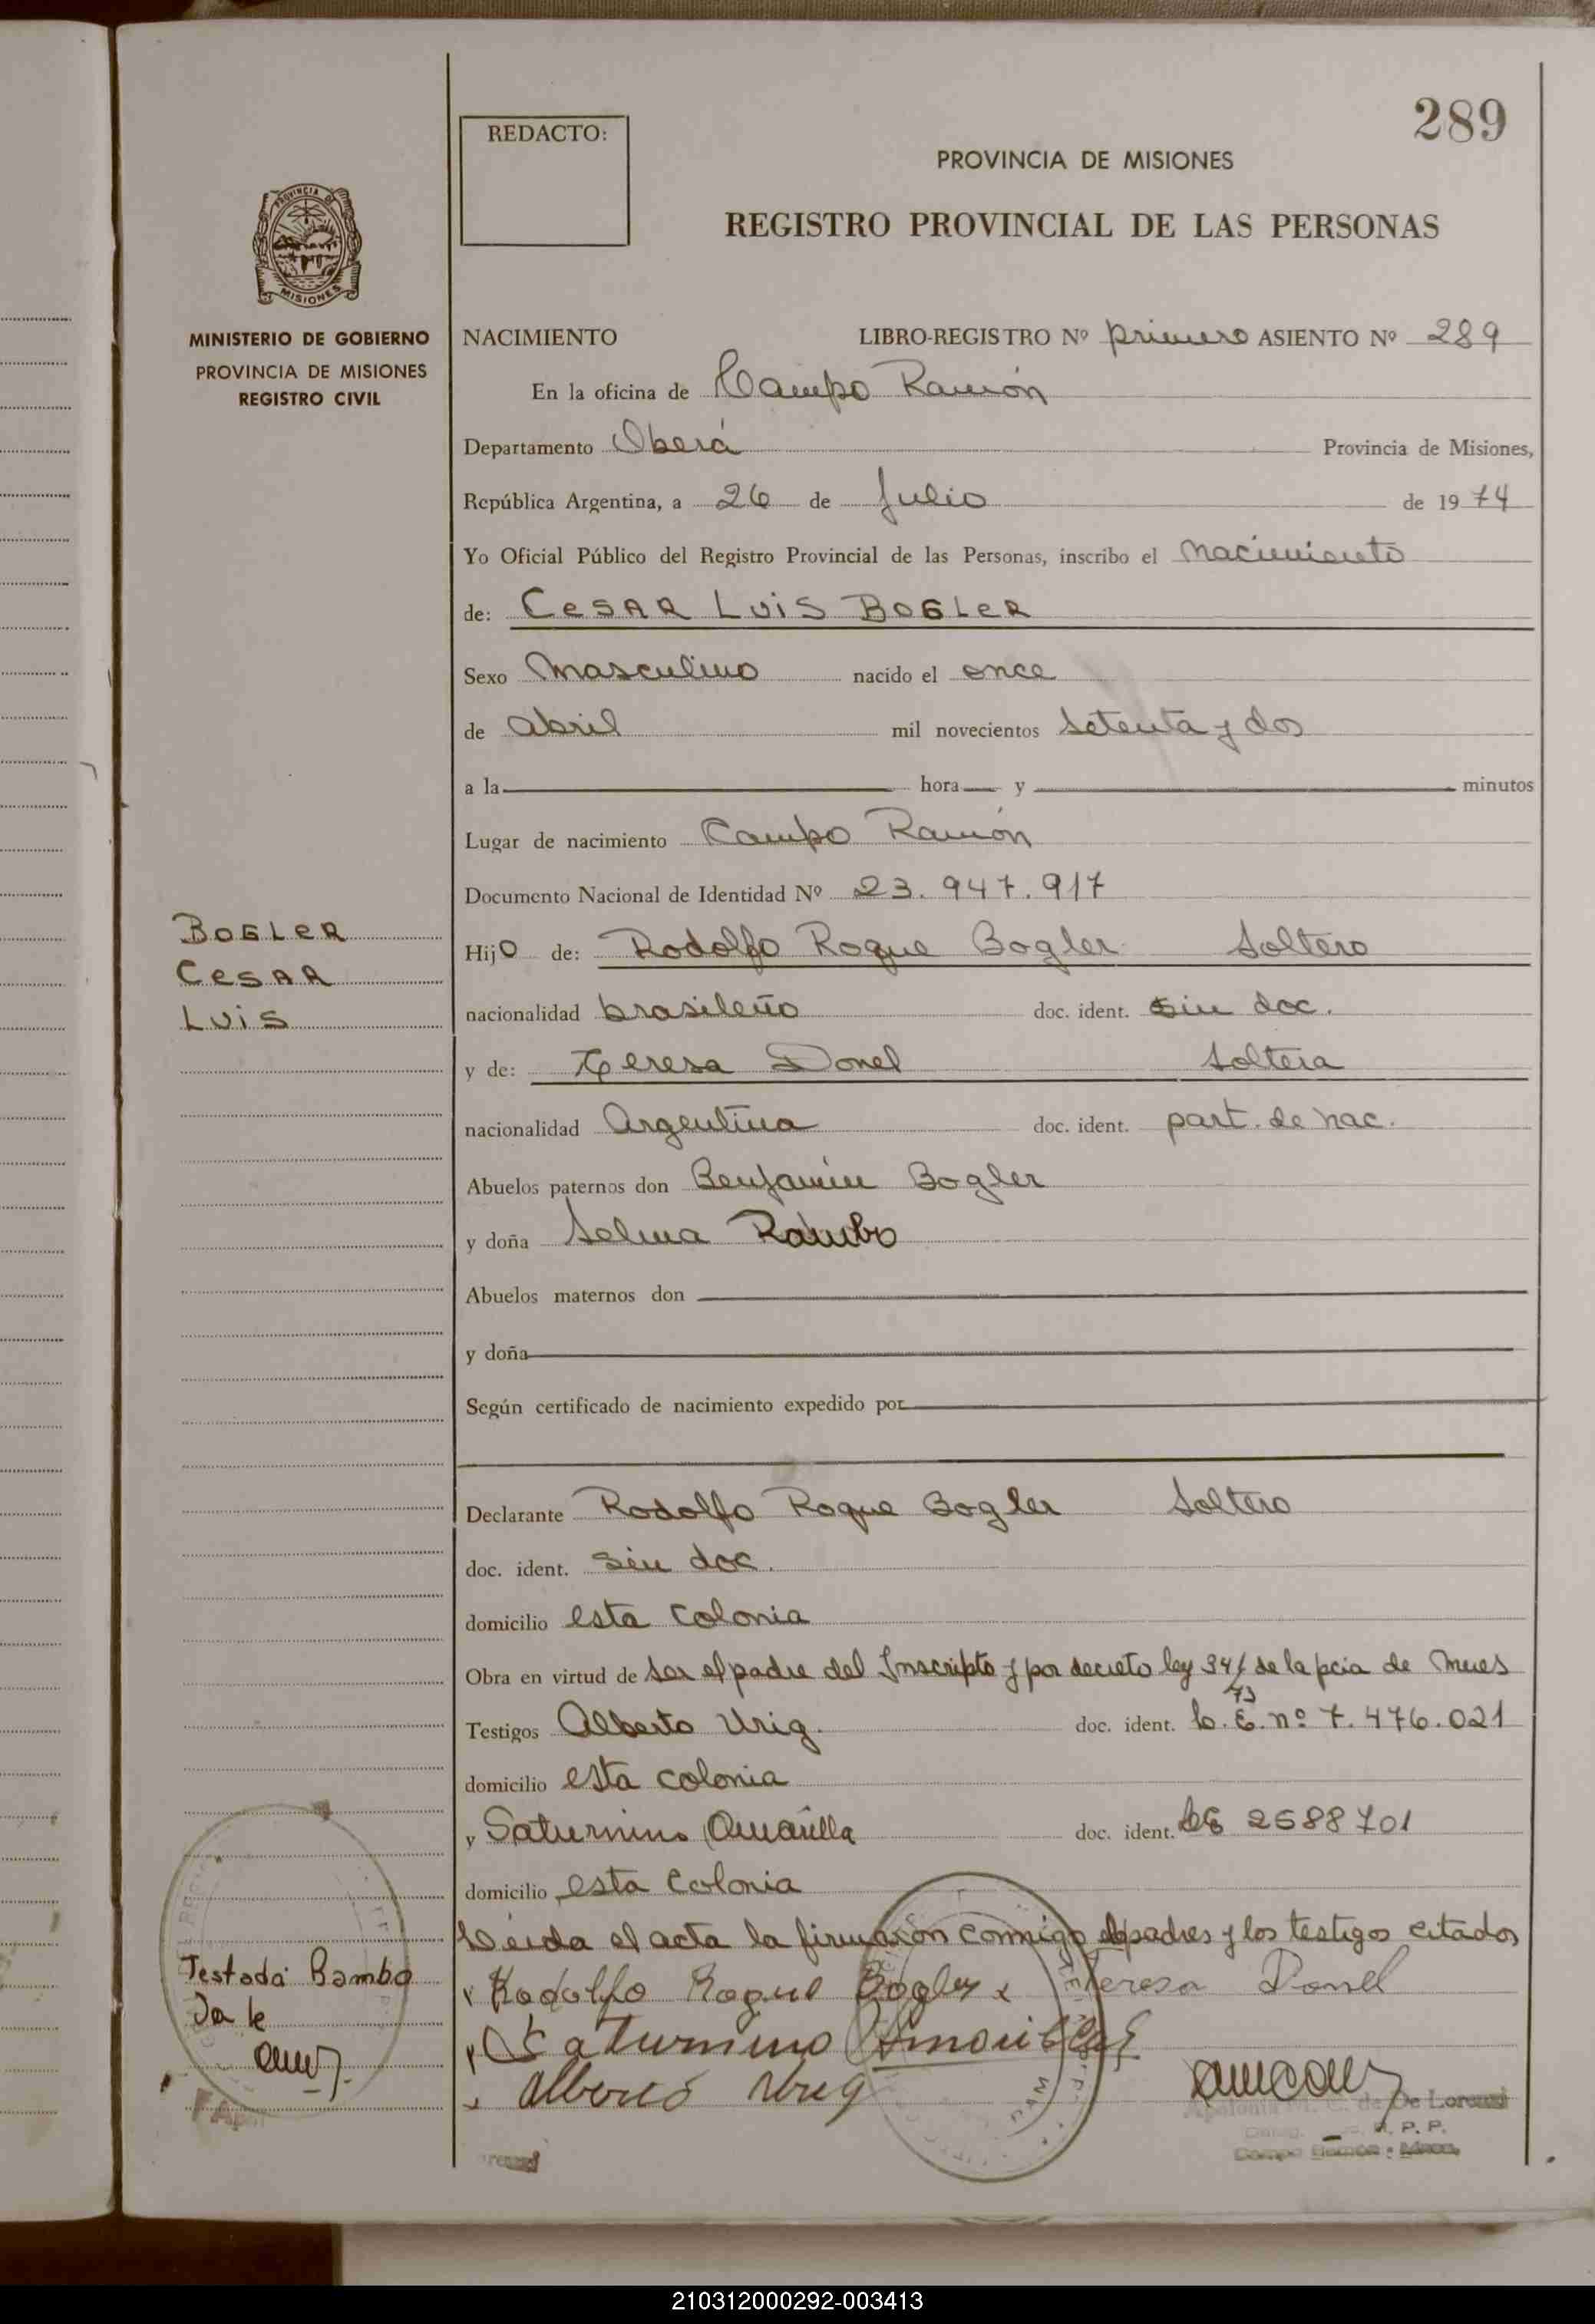 289
REDACTO:
PROVINCIA DE MISIONES
REGISTRO PROVINCIAL DE LAS PERSONAS
PROVINCIA DE
MISIONES
MINISTERIO DE GOBIERNO
PROVINCIA DE MISIONES
REGISTRO CIVIL
NACIMIENTO LIBRO-REGISTRO Nº primero ASIENTO Nº 289
En la oficina de Campo Ramón
Departamento Oberá Provincia de Misiones,
República Argentina, a 26 de Julio de 19 74
Yo Oficial Público del Registro Provincial de las Personas, inscribo el nacimiento
de: CESAR LUIS BOGLER
Sexo masculino nacido el once
de abril mil novecientos setenta y dos
a la hora y minutos
Lugar de nacimiento Campo Ramón
Documento Nacional de Identidad Nº 23.947.917
BOGLER
CESAR
LUIS
Hijo de: Rodolfo Roque Bogler soltero
nacionalidad brasileño doc. ident. sin doc.
y de: Teresa Donel soltera
nacionalidad Argentina doc. ident. part. de nac.
Abuelos paternos don Benjamin Bogler
y doña Selma Rambo
Abuelos maternos don
y doña
Según certificado de nacimiento expedido por
Declarante Rodolfo Roque Bogler soltero
doc. ident. sin doc.
domicilio esta colonia
Obra en virtud de ser el padre del Inscripto y por decreto ley 34/73 de la pcia de Mnes
Testigos Alberto Urig. doc. ident. L.E. nº 7.476.021
domicilio esta colonia
y Saturnino Amarilla doc. ident. LE 2588701
domicilio esta colonia
Leída el acta la firmaron conmigo padres y los testigos citados
Testada Bambo
Rodolfo Roque Bogler x Teresa Donel
Saturnino Amarilla
Alberto Urig
De Lorenzi
R. P. P.
Campo Ramón - Mnes.
210312000292-003413